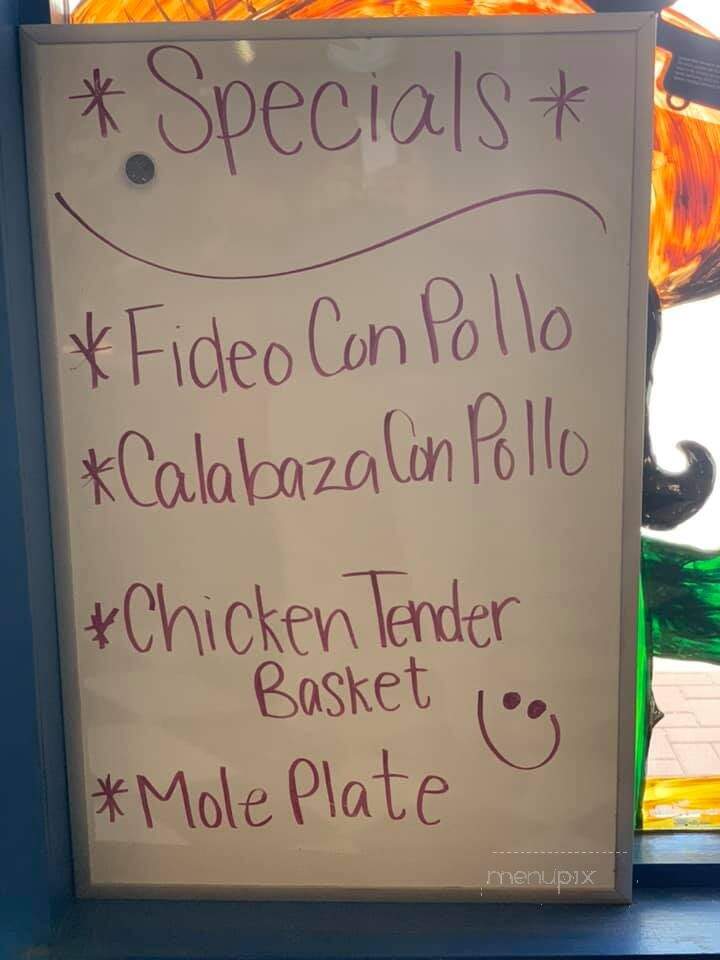 * Specials *
* Fideo Con Pollo
* Calabaza Con Pollo
* Chicken Tender
Basket
* Mole Plate
menupix